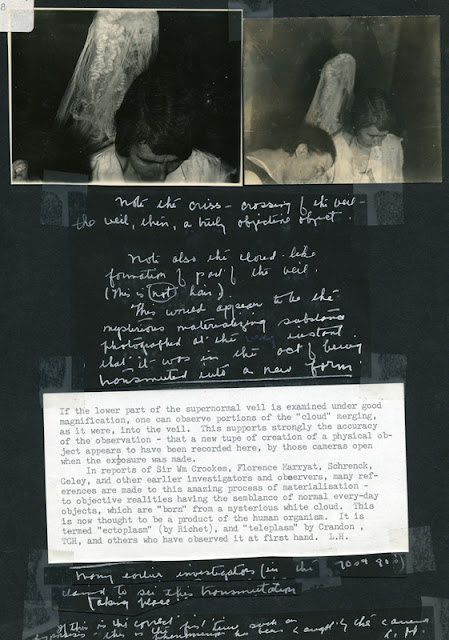 8
Note the criss-crossing of the veil -
the veil, then, a truly objective object.
Note also the cloud-like
formation of part of the veil.
(This is not hair).
This would appear to be the
mysterious materializing substance
photographed at the very instant
that it was in the act of being
transmuted into a new form
If the lower part of the supernormal veil is examined under good
magnification, one can observe portions of the "cloud" merging,
as it were, into the veil. This supports strongly the accuracy
of the observation - that a new tupe of creation of a physical ob-
ject appears to have been recorded here, by those cameras open
when the exposure was made.
In reports of Sir Wm Crookes, Florence Marryat, Schrenck,
Geley, and other earlier investigators and observers, many ref-
erences are made to this amazing process of materialisation -
to objective realities having the semblance of normal every-day
objects, which are "born" from a mysterious white cloud. This
is now thought to be a product of the human organism. It is
termed "ectoplasm" (by Richet), and "teleplasm" by Crandon ,
TGH, and others who have observed it at first hand. L.H.
Many earlier investigators (in the
claimed to see this transmutation
taking place.
If this is the correct
this is the first time such a
phenomenon has been caught by the camera
L.H.